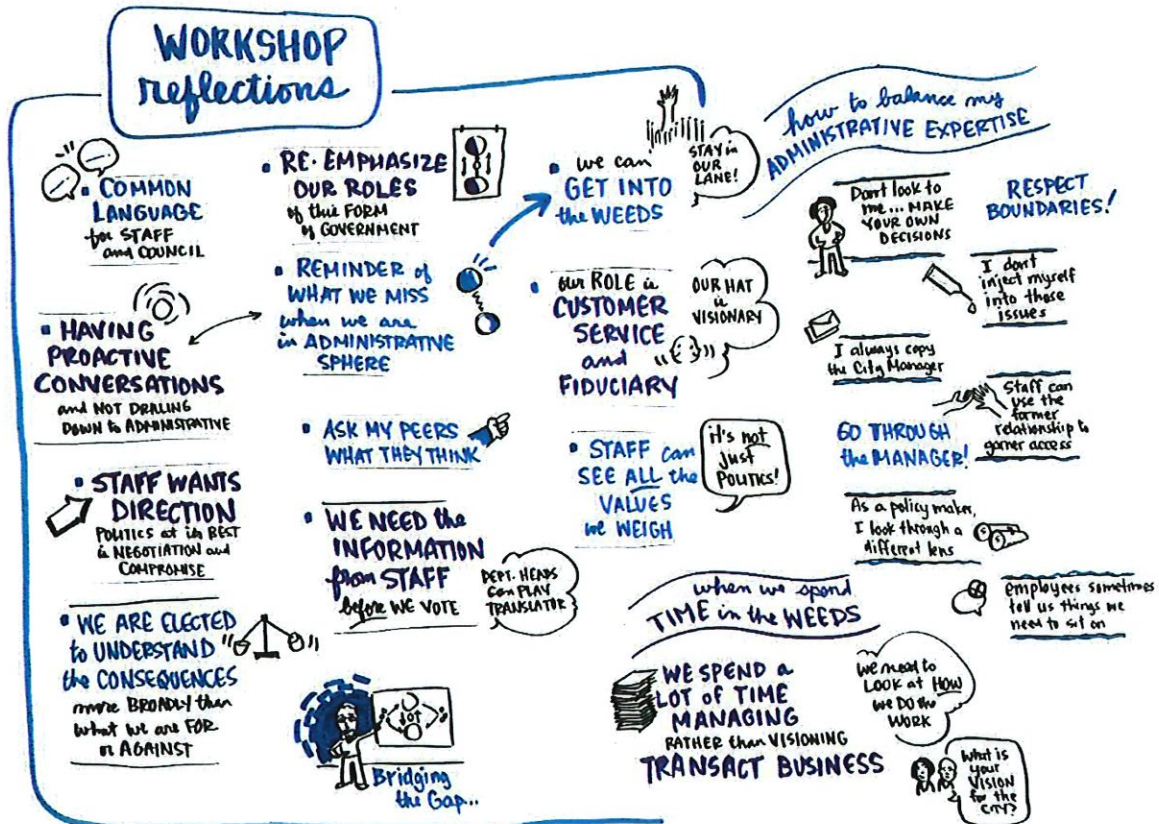 WORKSHOP
reflections
• COMMON
LANGUAGE
for STAFF
and COUNCIL
• HAVING
PROACTIVE
CONVERSATIONS
and NOT DRILING
DOWN to ADMINISTRATIVE
• STAFF WANTS
DIRECTION
POLITICS at its BEST
is NEGOTIATION and
COMPROMISE
• WE ARE ELECTED
to UNDERSTAND
the CONSEQUENCES
more BROADLY than
what we are FOR
or AGAINST
• RE-EMPHASIZE
OUR ROLES
of this FORM
of GOVERNMENT
• REMINDER of
WHAT WE MISS
when we are
in ADMINISTRATIVE
SPHERE
• ASK MY PEERS
WHAT THEY THINK
• WE NEED the
INFORMATION
from STAFF
before WE VOTE
DEPT. HEADS
can PLAY
TRANSLATOR
Bridging
the Gap..
• we can
GET INTO
the WEEDS
STAY in
OUR
LANE!
• our ROLE is
CUSTOMER
SERVICE
and
FIDUCIARY
OUR HAT
is
VISIONARY
• STAFF can
SEE ALL the
VALUES
we WEIGH
it's not
just
POLITICS!
how to balance my
ADMINISTRATIVE EXPERTISE
Dont look to
me... MAKE
YOUR OWN
DECISIONS
RESPECT
BOUNDARIES!
I dont
inject myself
into those
issues
I always copy
the City Manager
Staff can
use the
former
relationship to
garner access
GO THROUGH
the MANAGER!
As a policy maker,
I look through a
different lens
employees sometimes
tell us things we
need to sit on
when we spend
TIME in the WEEDS
WE SPEND a
LOT OF TIME
MANAGING
RATHER than VISIONING
TRANSACT BUSINESS
We need to
LOOK at HOW
we DO the
WORK
What is
your
VISION
for the
CITY?